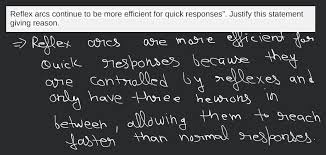 Reflex arcs continue to be more efficient for quick responses". Justify this statement
giving reason.
⇒ Reflex arcs are more efficient for
quick responses because they
are controlled by reflexes and
only have three neurons in
between, allowing them to reach
faster than normal responses.